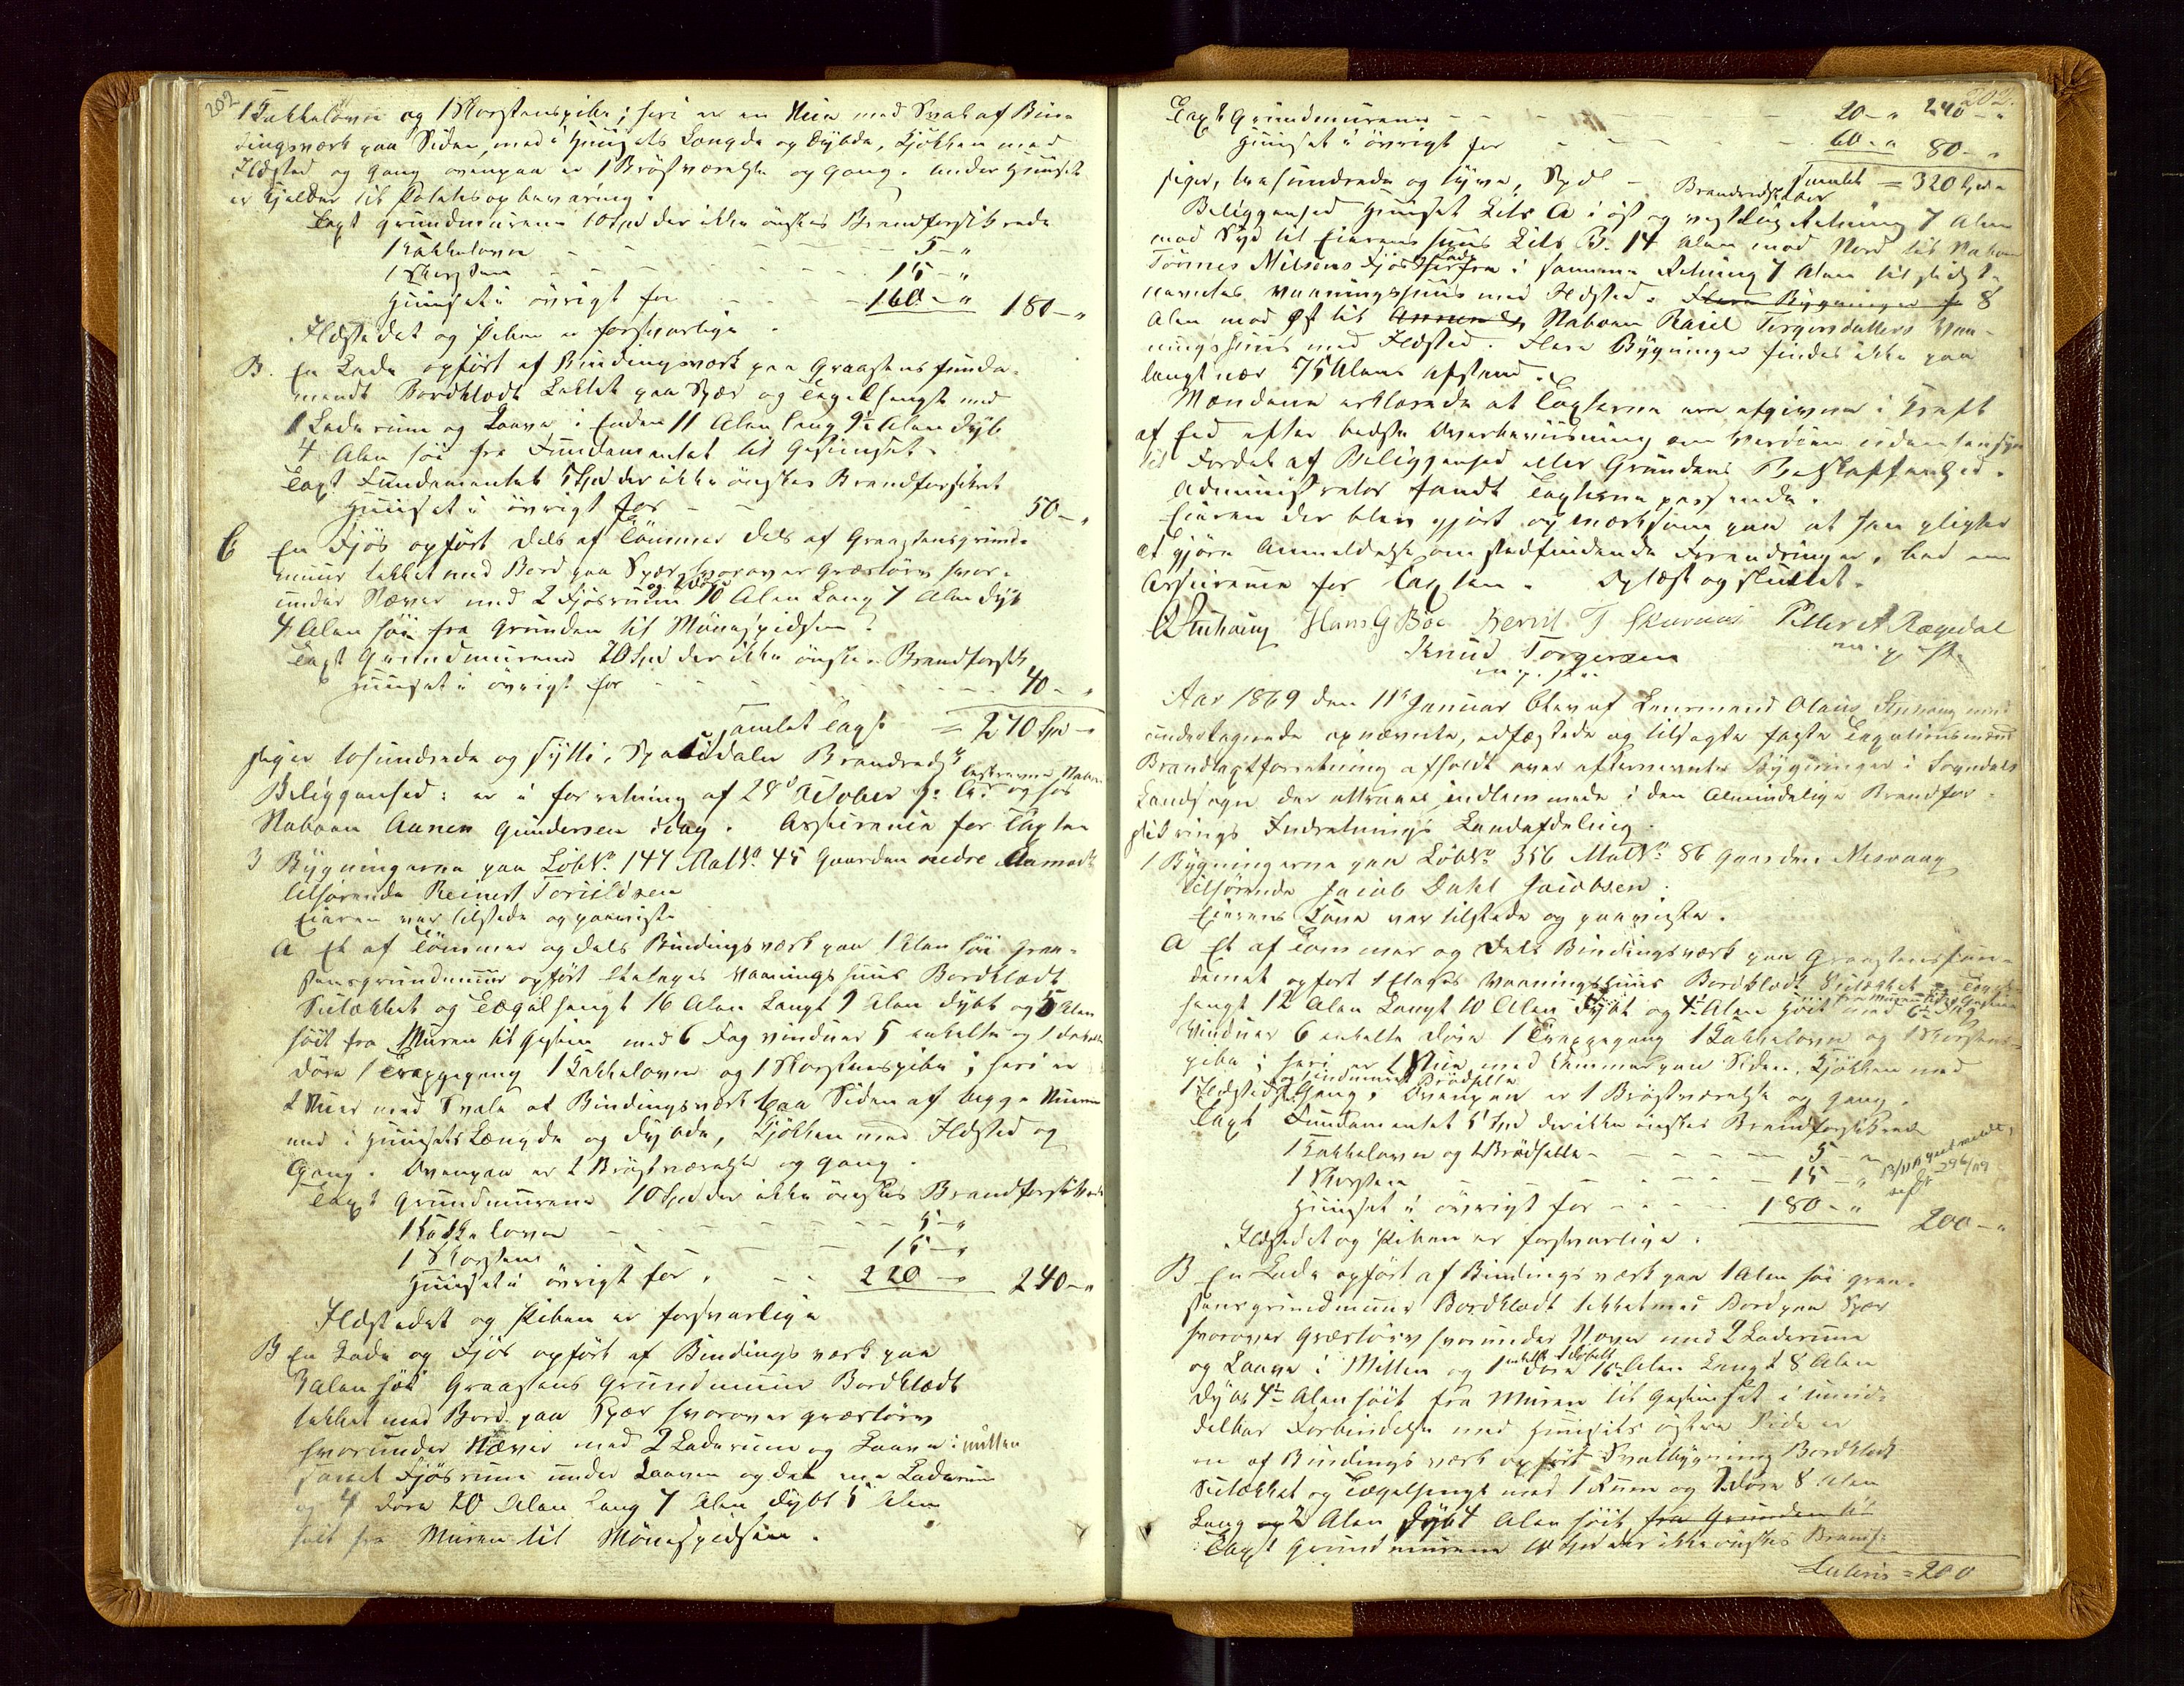 202
1 Kakkelovn og 1 Skorstenspibe; heri er en Stue med Sval af Bin-
dingsværk paa Siden, med i Huusets Længde og Dybde, Kjøkken med
Ildsted og Gang ovenpaa er 1 Brøstværelse og Gang. under Huuset
er Kjelder til Potetesopbevaring.
Taxt Grundmurene 10 Spd der ikke ønskes Brandforsikrede
1 Kakkelovn - - - 5 - "
1 Skorsten - - - 15 - "
Huuset i øvrigt for - - - 160 - " 180 - "
Ildstedet og Piben er forsvarlige.
B. En Lade opført af Bindingsværk paa Graastens funda-
mendt Bordklædt Lektet paa Spær og Tegelhængt med
1 Laderum og Laave i Enden 11 Alen lang 9½ Alen dyb
4 Alen høi fra Fundamentet til Gesimset.
Taxt Fundamentet 5 Spd der ikke ønskes Brandforsikret
Huuset i øvrigt for - - 50 - "
C En Fjøs opført dels af Tømmer dels af Graastensgrund-
muur tækket med Bord paa Spær hvorover Græstørv hvor-
under Næver med 2 Fjøsrum 10 Alen Lang 7 Alen dyb
4 Alen høi fra Grunden til Mønespidsen.
Taxt Grundmurene 20 Spd der ikke ønskes Brandforsik
Huuset i øvrigt for - - - 40 - "
samlet Taxt = 270 Spd -
siger tohundrede og sytti, Speciedaler
Beliggenhed: er i forretning af 28d October og hos
Naboen Aanen Gundersen idag. Assurance for Taxten
3 Bygningerne paa LøbNo 147 MatNo 45 Gaarden nedre Aamodt
tilhørende Reinert Torieldsen
Eieren var tilstede og paaviste
A Et af Tømmer og dels Bindingsværk paa 1 Alen høi Graa-
stensgrundmuur opført Etages Vaaningshuus Bordklædt
Sutækket og Tegelhængt 16 Alen Langt 9 Alen dybt og 5 Alen
høit fra Muren til Gesims med 6 Fag vinduer 5 enkelte og 1 dobbelt
døre 1 Trappegang 1 Kakkelovn og 1 Skorstenspibe; heri er
2 Stuer med Svale af Bindingsværk paa Siden af begge Stuerne
med i Huusets Længde og dybde, Kjøkken med Ildsted og
Gang. Ovenpaa er 2 Brøstværelse og Gang.
Taxt Grundmurene 10 Spd der ikke ønskes Brandforsikrede
1 Kakkelovn - - - 5 - "
1 Skorsten - - - 15 - "
Huuset i øvrigt for - - 220 - " 240 - "
Ildstedet og Piben er forsvarlige
B En Lade og Fjøs opført af Bindingsværk paa
3 Alen høi Graastens Grundmuur Bordklædt
tækket med Bord paa Spær hvorover græstørv
hvorunder Næver med 2 Laderum og Laave i midten
samt Fjøsrum under Laaven og det ene Laderum
og 4 døre 20 Alen Lang 7 Alen dybt 5 Alen
høit fra Muren til Mønespidsen.
202.
Taxt Grundmurene - - - 20 - " 240 - "
Huuset i øvrigt for - - - 60 - " 80 - "
Samlet = 320 Spd
siger, trehundrede og tyve, Spdl -
Beliggenhed Huuset Litr A i øst og vestlig Retning 7 Alen
mod Syd til Eierens huus Litr B. 14 Alen mod Nord til Naboen
Tønnes Nilsens Fjøs herfra i samme Retning 7 Alen til sidst-
nævntes Vaaningshuus med Ildsted. Flere Bygninger f 8
Alen mod Øst til Naboen Raiel Torgersdatters Vaa-
ningshuus med Ildsted. Flere Bygninger findes ikke paa
langt nær 75 Alens afstand.
Mændene erklærede at Taxterne ere afgivne i Kraft
af Eed efter bedste Overbeviisning om Værdien uden hensyn
til Fordel af Beliggenhed eller Grundens Beskaffenhed.
Administrator fandt Taxterne passende.
Eieren der blev gjort opmærksom paa at han pligter
at gjøre Anmeldelse om stedfindende Forandringer, bad om
Assurance for Taxten. Oplæst og sluttet.
OStuhaug Hans G Bøe Bernt T Skurvus Petter A Rægedal
Knud Torgersen m.p.st.
m.p.st.
Aar 1869 den 11te Januar blev af Lensmand Olaus Stuhaug med
undertegnede opnævnte, edfæstede og tilsagte faste Taxationsmænd
Brandtaxtforretning afholdt over efternævnte Bygninger i Sogndals
Landsogn der attraaes indlemmede i den Almindelige Brandfor-
sikrings Indretnings Landafdeling.
1 Bygningerne paa LøbNo 356 MatNo 86 Gaarden Mesvaag
tilhørende Jacob Dahl Jacobsen.
Eierens Kone var tilstede og paaviste.
A Et af Tømmer og dels Bindingsværk paa Graastensfun-
dament opført 1 Etages Vaaningshuus Bordklædt Sutækket og Tegel-
hængt 12 Alen Langt 10 Alen dybt og 4½ Alen høit
Vinduer 6 enkelte døre 1 Trappegang 1 Kakkelovn og 1 Skorstens-
pibe; heri er 1 Stue med Kammer paa Siden. Kjøkken med
1 Ildsted og indmuret Brødhelle Gang. Ovenpaa er 1 Brøstværelse og Gang.
Taxt Fundamentet 5 Spd der ikke ønskes Brandforsikrede
1 Kakkelovn og 1 Brødhelle - - - 5 - "
1 Skorsten - - - 15 - "
Huuset i øvrigt for - - - 180 - " 200 - "
Ildstedet og Piben er forsvarlige.
B En Lade opført af Bindingsværk paa 1 Alen høi graa-
stensgrundmuur Bordklædt tækket med Bord paa Spær
hvorover Græstørv hvorunder Næver med 2 Laderum
og Laave i Midten og 1 enkelt 1 dobbelt døre 16 Alen Langt 8 Alen
dybt 4½ Alen høit fra Muren til Gesimset i umid-
delbar Forbindelse med Huusets østre Side er
en af Bindingsværk opført Svalbygning Bordklædt
Sutækket og Tegelhængt med 1 Rum og 1 døre 8 Alen
Lang og 2 Alen dybt 4 Alen høit fra Grunden til
Taxt Grundmurene 10 Spd der ikke ønskes Brandf:
Lateris = 200